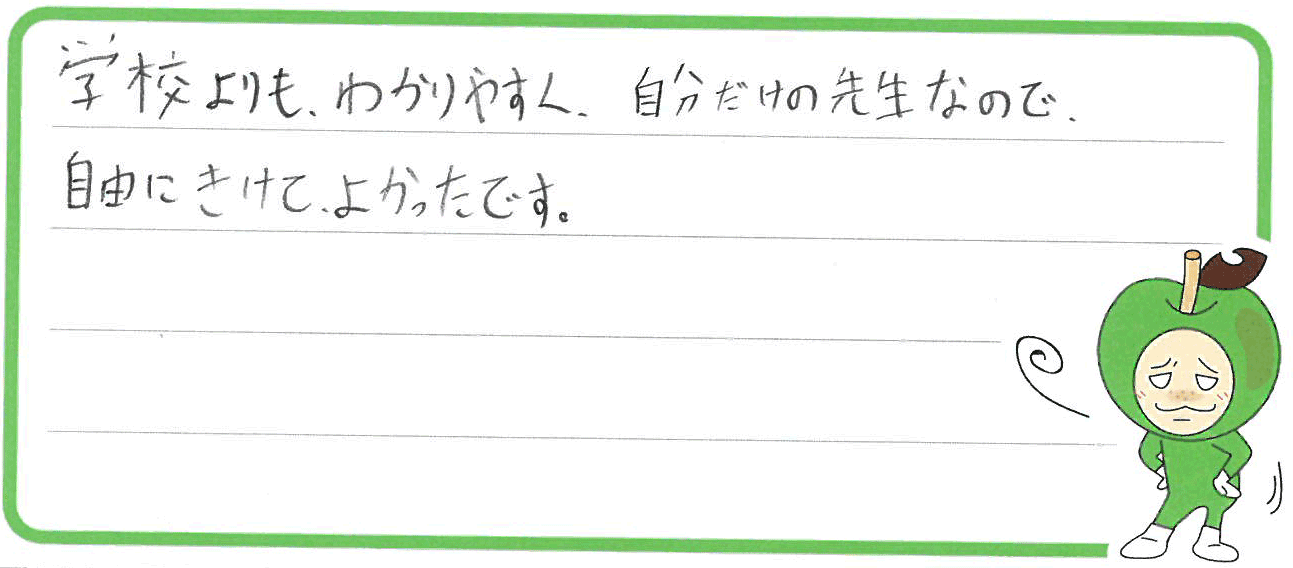 学校よりも、わかりやすく、自分だけの先生なので、
自由にきけて、よかったです。